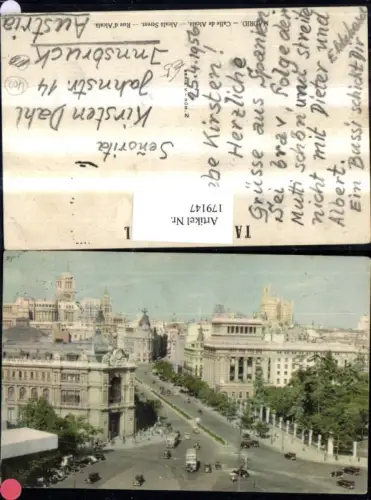 MADRID. — Calle de Alcalá. — Alcala Street. — Rue d'Alcala.
25.4.1956
be Kirsten!
Herzliche
Grüsse aus Spanien
Sei brav, folge dem
Mutti schön und streite
nicht mit Dieter und
Albert.
Ein Bussi schickt Dir
Señorita
Kirsten Dahl
Jahnstr. 14
Innsbruck
Austria
TA
L
Artikel Nr.
179147